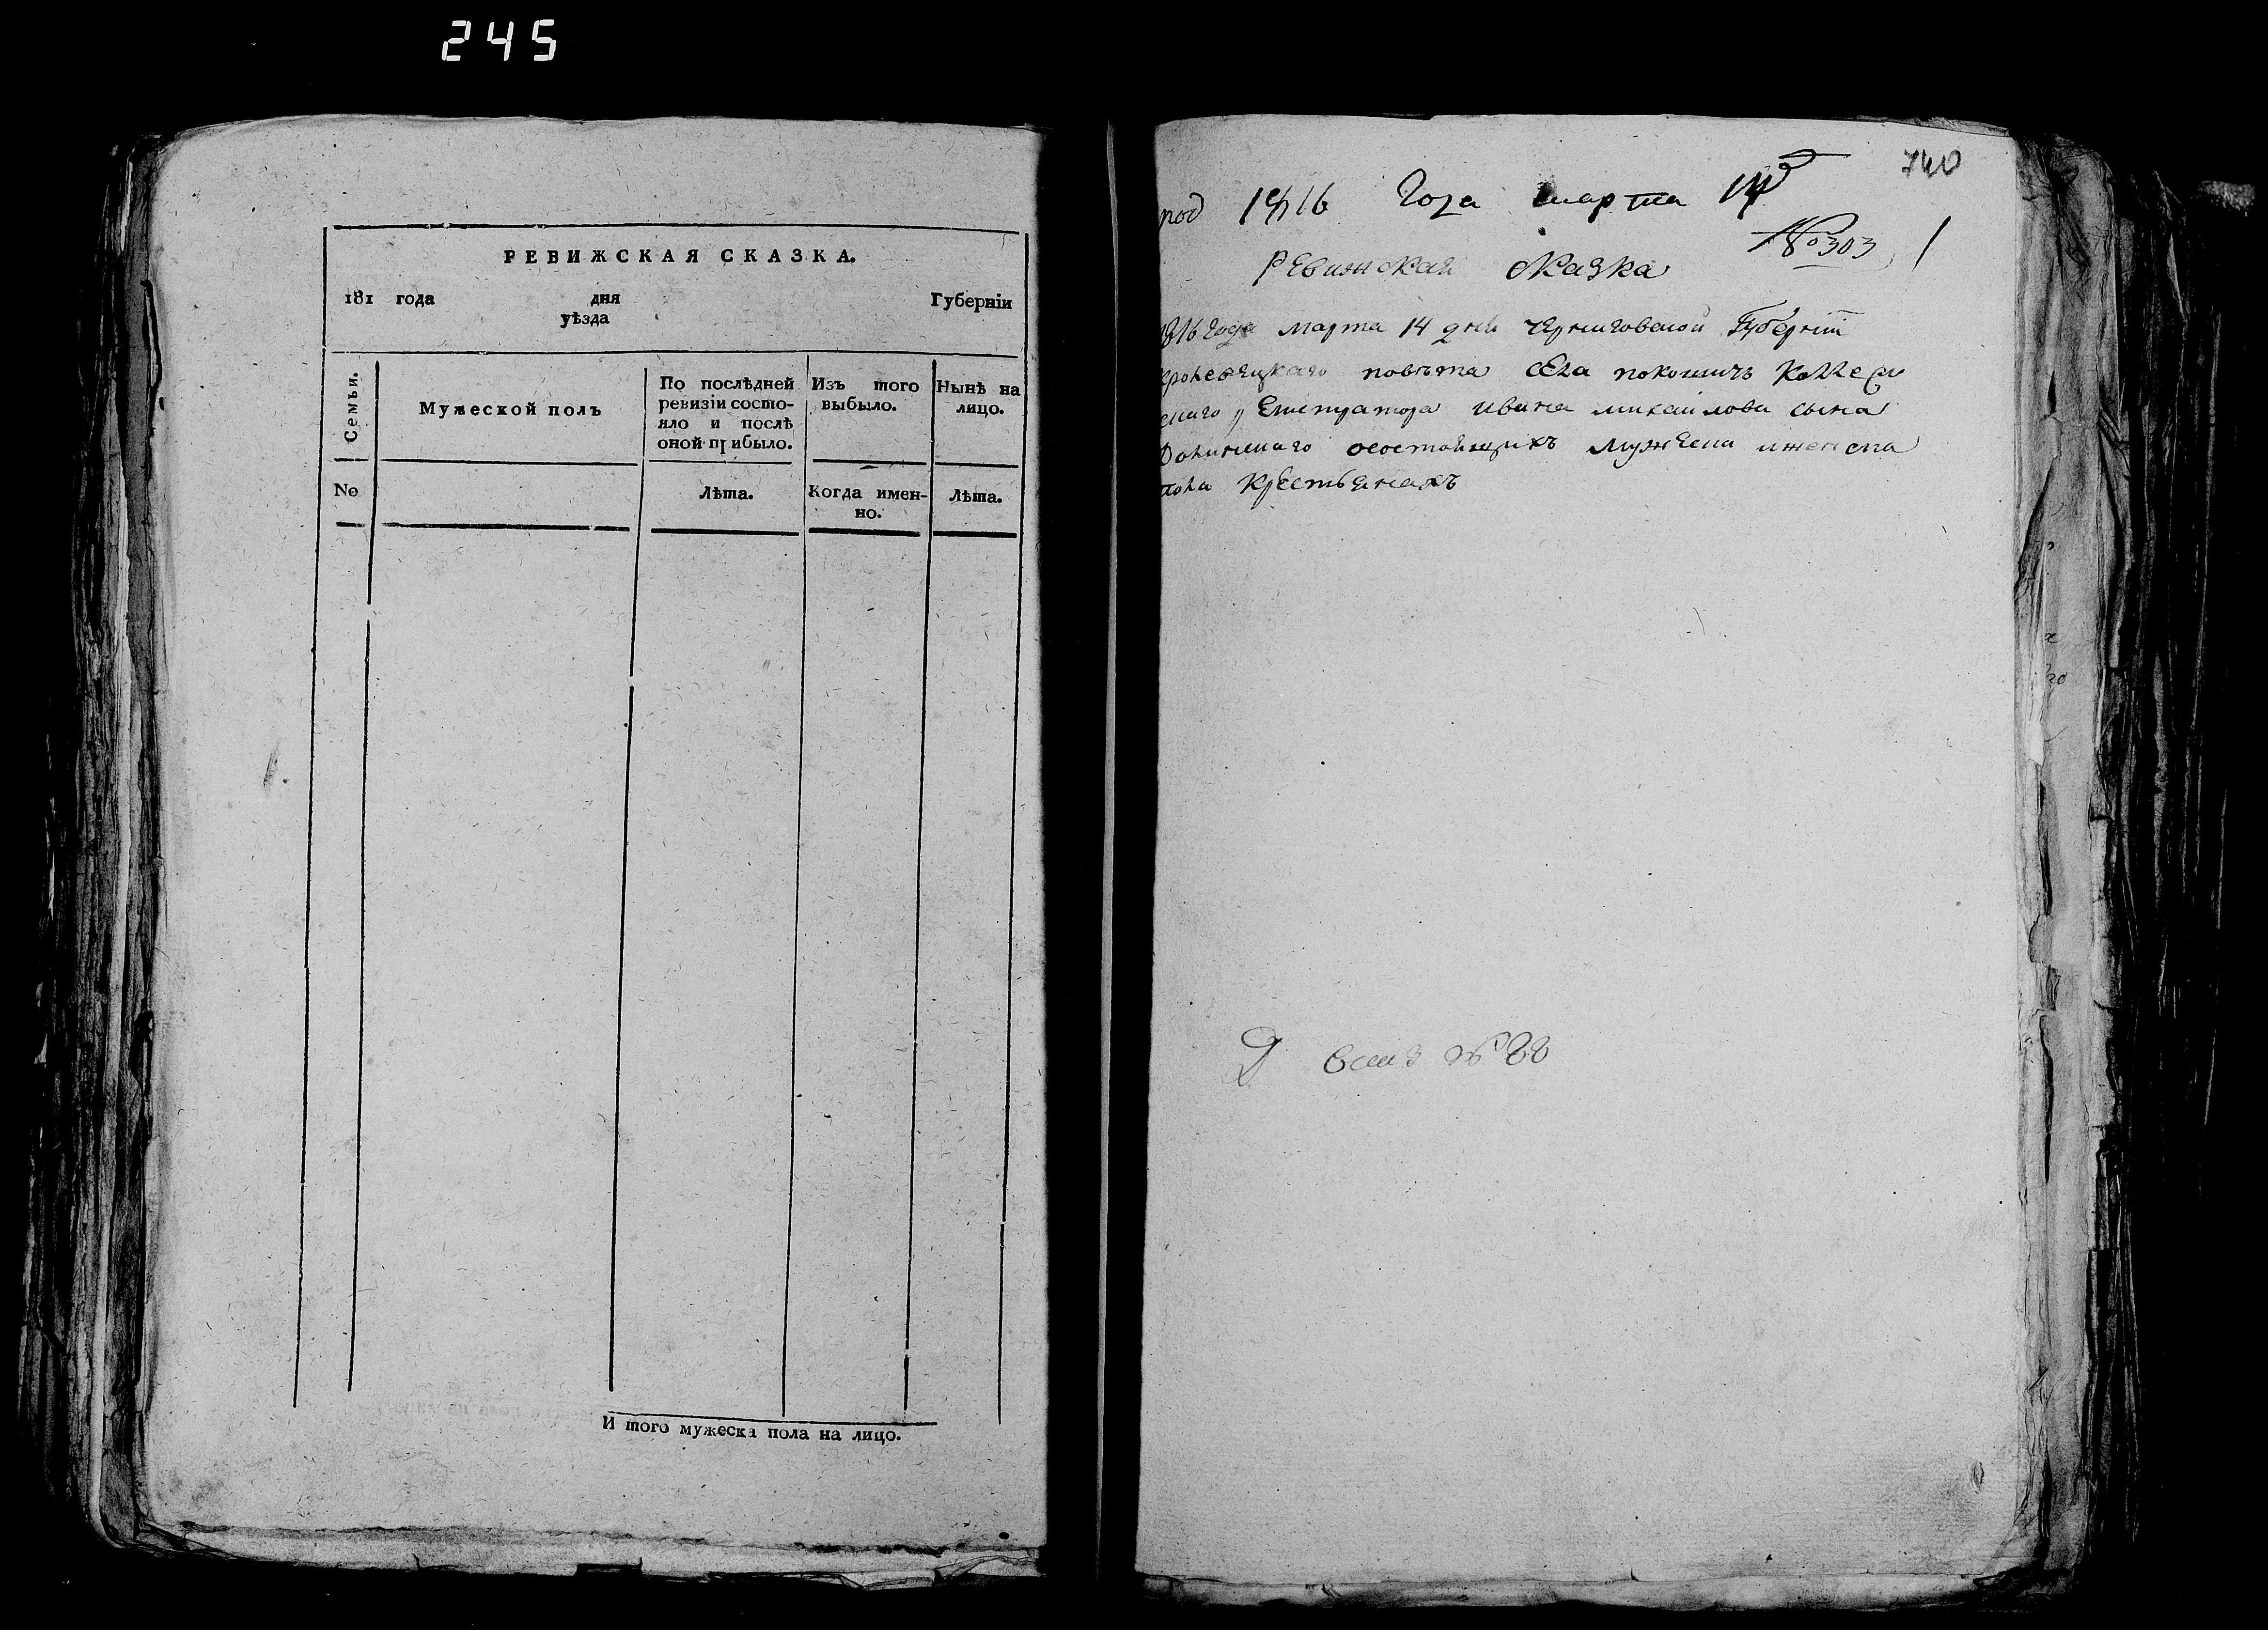 245
РЕВИЖСКАЯ СКАЗКА.
181 года дня Губерніи
уѣзда
Семьи.
Мужеской полъ
По послѣдней
ревизіи состо-
яло и послѣ
оной прибыло.
Изъ того
выбыло.
Нынѣ на
лицо.
No
Лѣта.
Когда имен-
но.
Лѣта.
И того мужеска пола на лицо.
740
под 1816 Года марта 14
№ 303
Ревижская сказка
1816 года марта 14 дня черниговской Губерніи
кролевецкаго повѣта села покошичъ Коллеж
скаго регистратора ивана михайлова сына
состоящихъ мужеска иженска
пола крестьянахъ